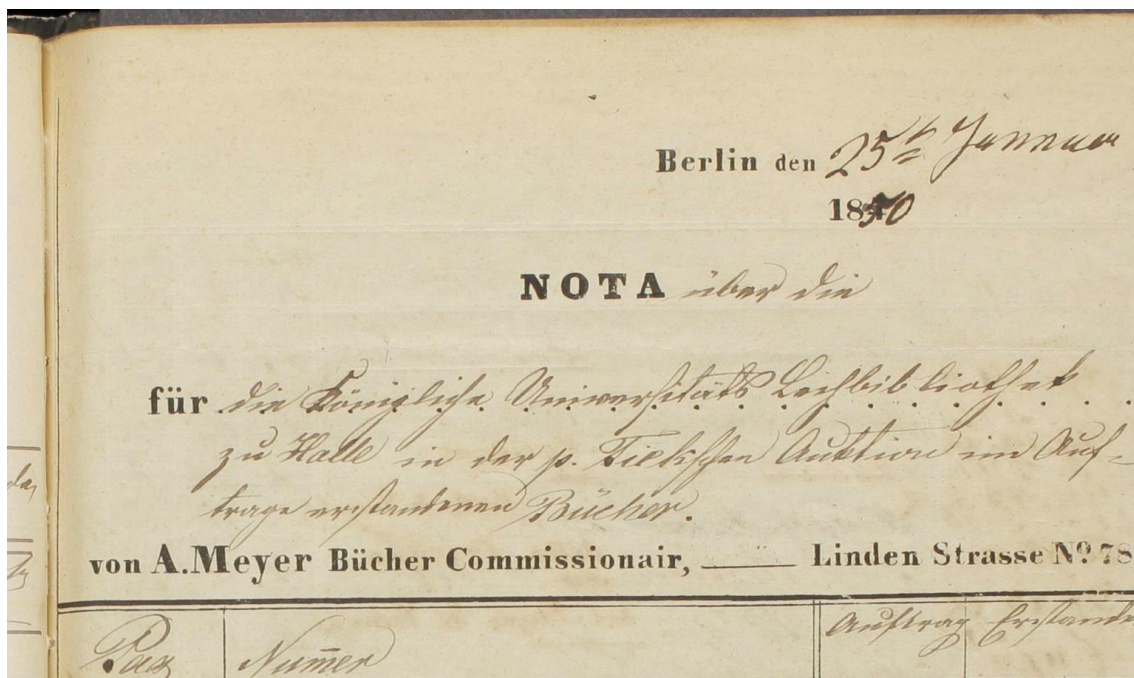 Berlin den 25t Januar
1850
NOTA über die
für die Königliche Universitäts Leihbibliothek
zu Halle in der p. Tiekschen Auktion im Auf-
trage erstandenen Bücher.
von A. Meyer Bücher Commissionair, Linden Strasse No. 78
Auftrag Erstande
Pag Num̄er